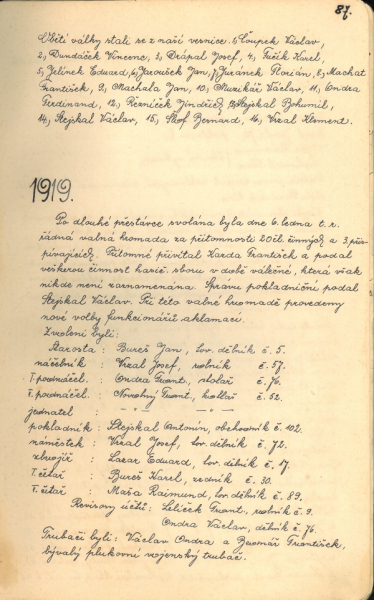 87.
Oběti války stali se z naší vesnice. 1, Coupek Václav,
2, Dundáček Vincenc, 3, Drápal Josef, 4, Fučík Karel,
5, Jelínek Eduard, 6, Jaroušek Jan, 7, Juránek Florián, 8, Machat
František, 9, Machala Jan, 10, Muzikář Václav, 11, Ondra
Ferdinand, 12, Řezníček Jindřich, 13, Stejskal Bohumil,
14, Stejskal Václav, 15, Skof Bernard, 16, Vrzal Klement.
1919.
Po dlouhé přestávce svolána byla dne 6. ledna t. r.
řádná valná hromada za přítomnosti 20 čl. činných a 3. přis-
pívajících. Přítomné přivítal Karda František a podal
veškerou činnost hasič. sboru v době válečné, která však
nikde není zaznamenána. Zprávu pokladniční podal
Stejskal Václav. Při této valné hromadě provedeny
nové volby funkcionářů aklamací.
Zvoleni byli:
Starosta : Bureš Jan, tov. dělník č. 5.
náčelník : Vrzal Josef, rolník č. 57.
I. podnáčel. : Ondra Frant., stolař č. 76.
II. podnáčel. : Novotný Frant., kolář č. 52.
jednatel — " — — " —
pokladník : Stejskal Antonín, obchodník č. 102.
náměstek : Vrzal Josef, tov. dělník č. 72.
zbrojíř : Lazar Eduard, tov. dělník č. 17.
I. četař : Bureš Karel, zedník č. 30.
II. četař : Maša Raimund, tov. dělník č. 89.
Revisory účtů: Lelíček Frant., rolník č. 9.
Ondra Václav, dělník č. 76.
Trubači byli: Václav Ondra a František,
bývalý plukovní vojenský trubač.